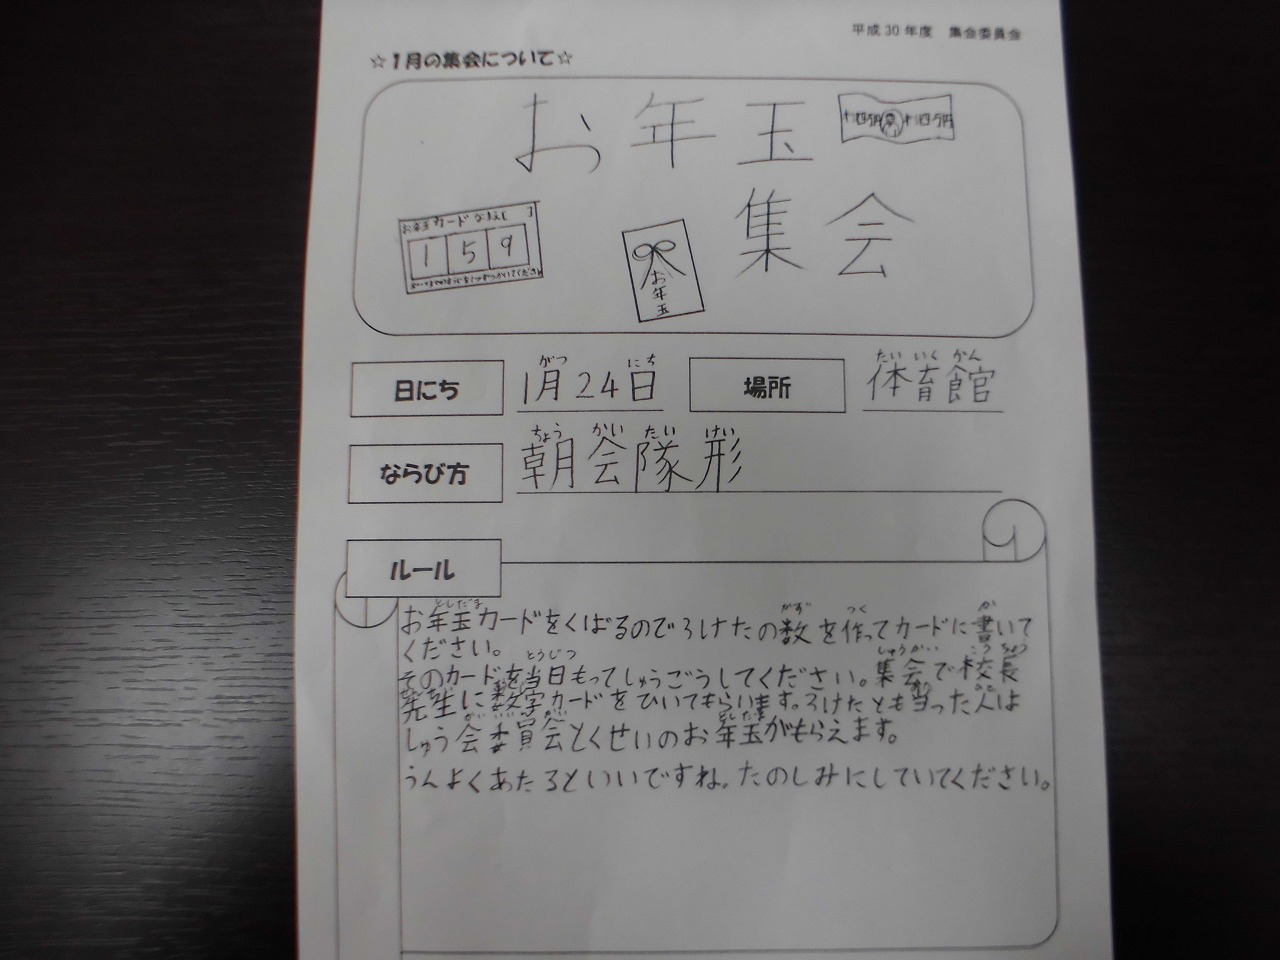 平成30年度 集会委員会
☆1月の集会について☆
お年玉
集会
お年玉カード なまえ[ ]
1 5 9
お年玉
日にち
1月24日
がつ にち
場所
体育館
たいいくかん
ならび方
朝会隊形
ちょうかいたいけい
ルール
お年玉カードをくばるので3けたの数を作ってカードに書いて
としだま かず つく か
ください。
そのカードを当日もってしゅうごうしてください。集会で校長
とうじつ しゅうかい こうちょう
先生に数字カードをひいてもらいます。3けたとも当った人は
しゅう会委員会とくせいのお年玉がもらえます。
うんよくあたるといいですね。たのしみにしていてください。